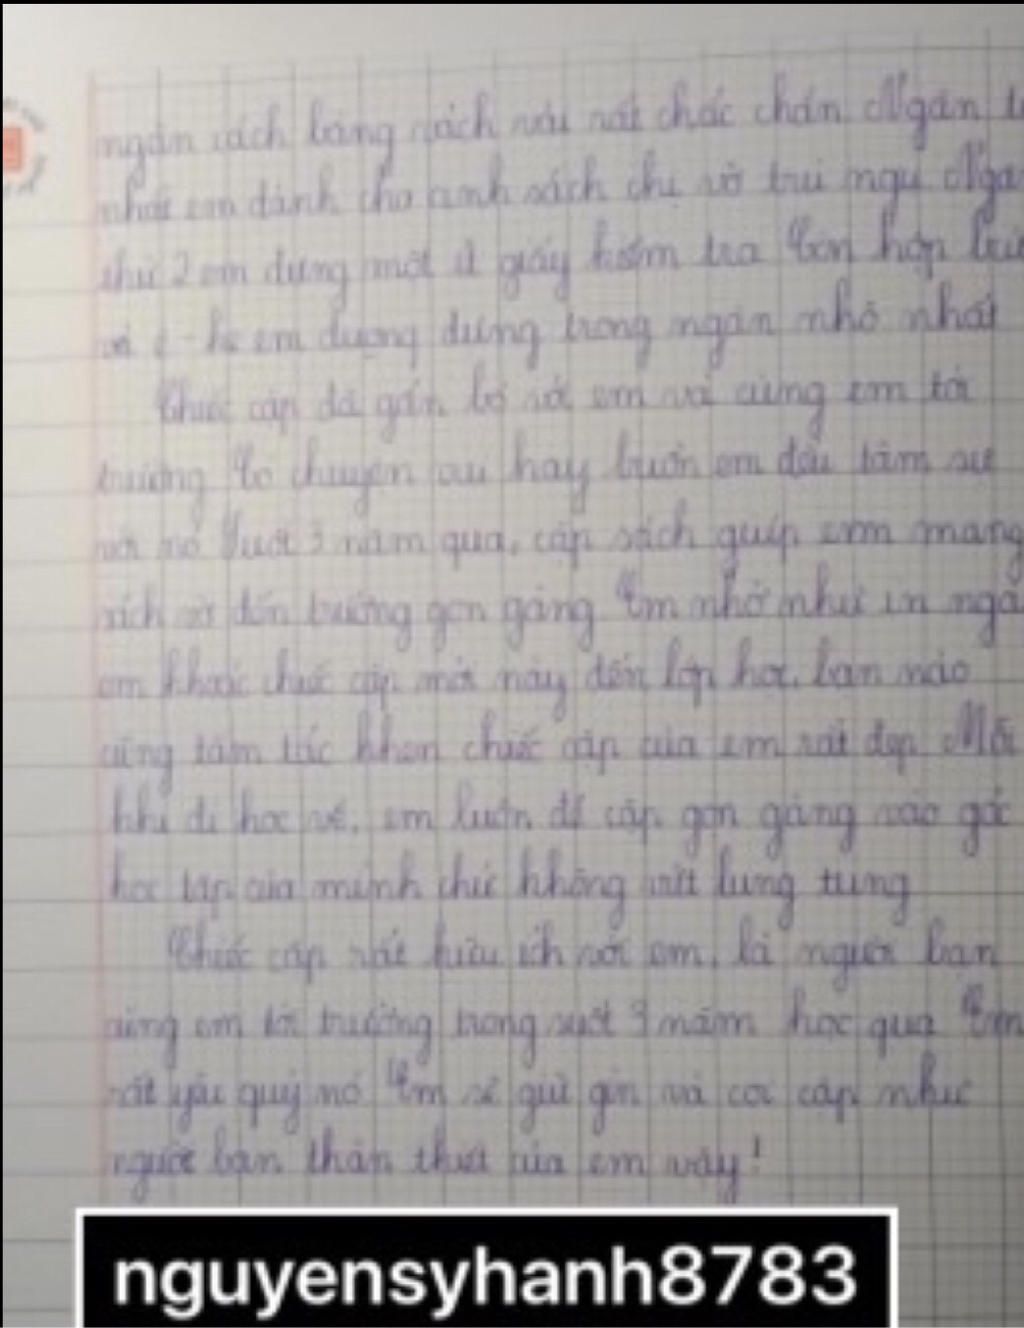 ngăn cách bằng vách vải rất chắc chắn Ngăn
nhất em dành cho anh sách chị vở trú ngụ
thứ 2 em đựng một ít giấy kiểm tra Còn hộp bút
và ê-ke em đựng trong ngăn nhỏ nhất
Chiếc cặp đã gắn bó với em và cùng em tới
trường Có chuyện vui hay buồn em đều tâm sự
với nó Suốt 3 năm qua, cặp sách giúp em mang
sách vở đến trường gọn gàng Em nhớ như in
em khoác chiếc cặp mới này đến lớp học, bạn nào
cũng tấm tắc khen chiếc cặp của em rất đẹp Mỗi
khi đi học về, em luôn để cặp gọn gàng vào góc
học tập của mình chứ không vứt lung tung
Chiếc cặp rất hữu ích với em, là người bạn
cùng em tới trường trong suốt 3 năm học qua Em
rất yêu quý nó Em sẽ giữ gìn và coi cặp như
người bạn thân thiết của em vậy!
nguyensyhanh8783